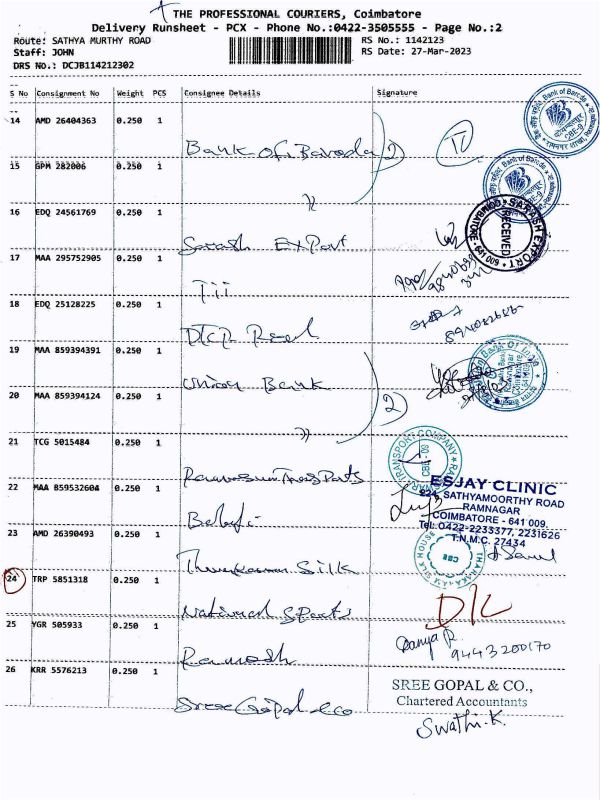 THE PROFESSIONAL COURIERS, Coimbatore
Delivery Runsheet - PCX - Phone No.:0422-3505555 - Page No.:2
Route: SATHYA MURTHY ROAD
RS No.: 1142123
Staff: JOHN
RS Date: 27-Mar-2023
DRS No.: DCJB114212302
S No Consignment No Weight PCS Consignee Details Signature
14 AMD 26404363 0.250 1
Bank of Baroda 2
15 GPM 282006 0.250 1
16 EDQ 24561769 0.250 1
Sarash Export
17 MAA 295752905 0.250 1
Tii
18 EDQ 25128225 0.250 1
DTCP
19 MAA 859394391 0.250 1
Union Bank
20 MAA 859394124 0.250 1
2
21 TCG 5015484 0.250 1
22 MAA 859532604 0.250 1
Balaji
23 AMD 26390493 0.250 1
Silk
24 TRP 5851318 0.250 1
National Sports
25 YGR 505933 0.250 1
Ramesh
26 KRR 5576213 0.250 1
Sree Gopal & co
Bank of Baroda
Bank of Baroda
SARASH EXPORT
RECEIVED
COIMBATORE - 641 009
TRANSPORT COMPANY
ESJAY CLINIC
224, SATHYAMOORTHY ROAD
RAMNAGAR
COIMBATORE - 641 009.
Tel: 0422-2233377, 2231626
T.N.M.C. 27434
SILK HOUSE
CBE
D/L
Ramya R
9443200170
SREE GOPAL & CO.,
Chartered Accountants
Swathi.K